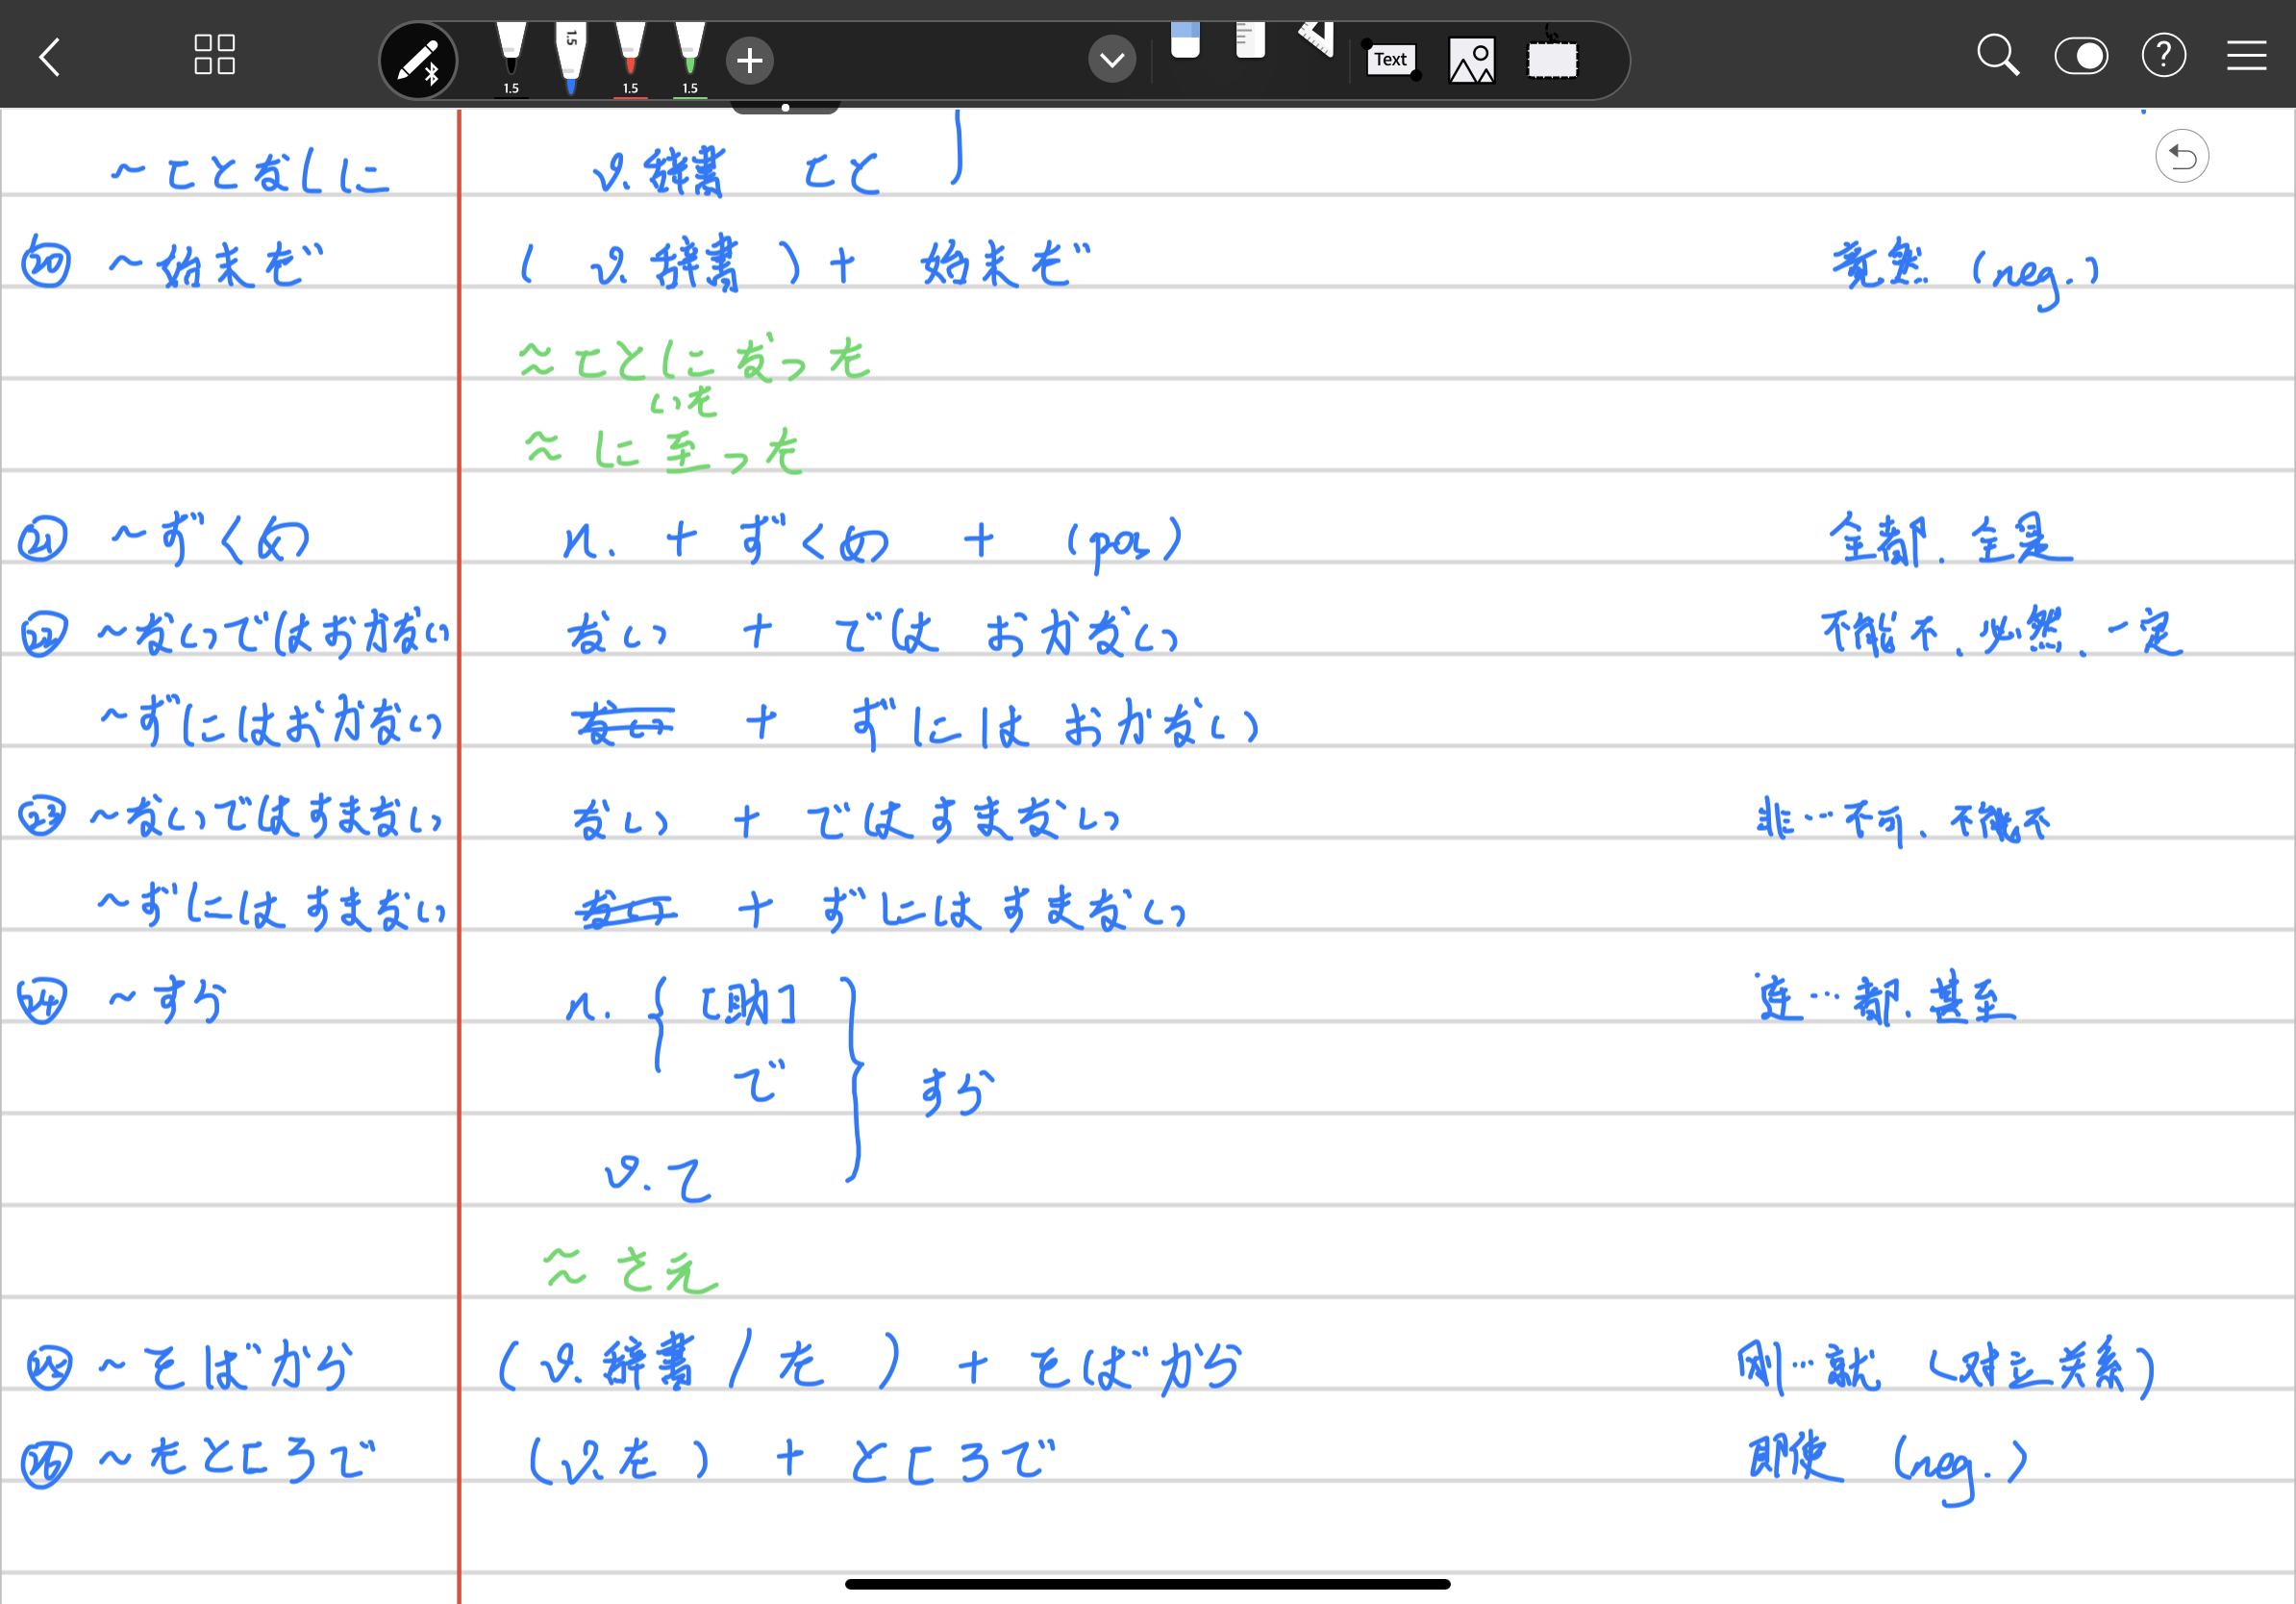 1.5 1.5 1.5 1.5 Text
～ことなしに v.辞書 こと
㊵ ～始末だ (v.辞書)+始末だ 落葉 (neg.)
≈ ことになった
いた
≈ に至った
㊶ ～ずくめ n. + ずくめ + (pn)
㊷ ～ないではおかない ない + ではおかない 不能不. 必然. 一定
～ずにはおかない ない + ずにはおかない
㊸ ～ないではすまない ない + ではすまない 非…不可. 不能不
～ずにはすまない ない + ずにはすまない
㊹ ～すら n. [助] 連…都. 甚至
で すら
v.て
≈ さえ
㊺ ～そばから (v.辞書/た) + そばから 剛…就 (味並系)
㊻ ～たところで (v.た) + ところで 即使 (neg.)